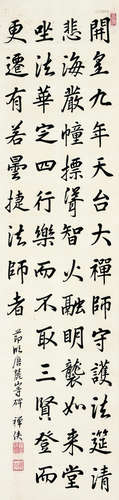 開皇九年天台大禪師守護法筵清
悲海嚴幢標聳智火融明襲如來堂
坐法華定四行樂而不取三賢登而
更遷有若曇捷法師者
節臨唐麓山寺碑 禪洪